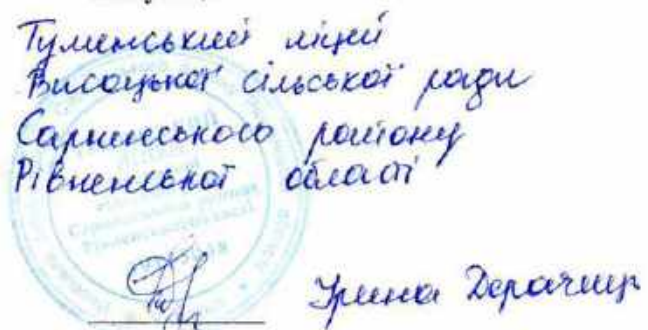 Туменський ліцей
Висоцької сільської ради
Сарненського району
Рівненської області
Ірина Дерачиць